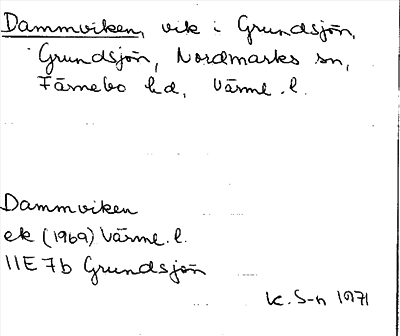 Dammviken, vik i Grundsjön,
Grundsjön, Nordmarks sn,
Färnebo hd, Värml. l.
Dammviken
ek (1969) Värml. l.
11E 7b Grundsjön
K. S-n 1971